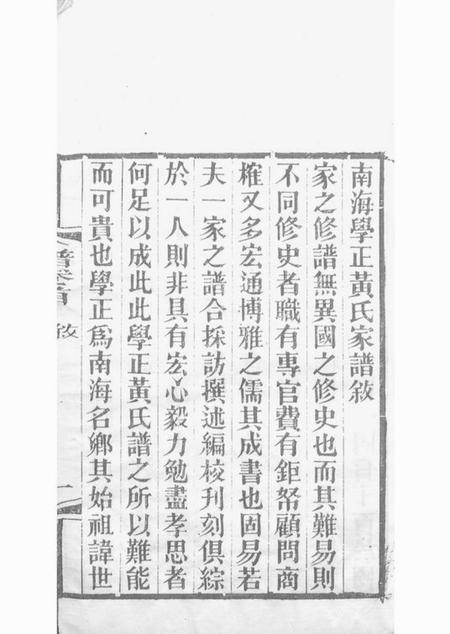 南海學正黃氏家譜敘
家之修譜無異國之修史也而其難易則
不同修史者職有專官費有鉅帑顧問商
榷又多宏通博雅之儒其成書也固易若
夫一家之譜合採訪撰述編校刊刻俱綜
於一人則非具有宏心毅力勉盡孝思者
何足以成此此學正黃氏譜之所以難能
而可貴也學正爲南海名鄉其始祖諱世
敘
一